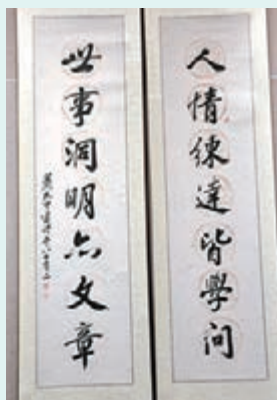 人情練達皆學問
世事洞明亦文章